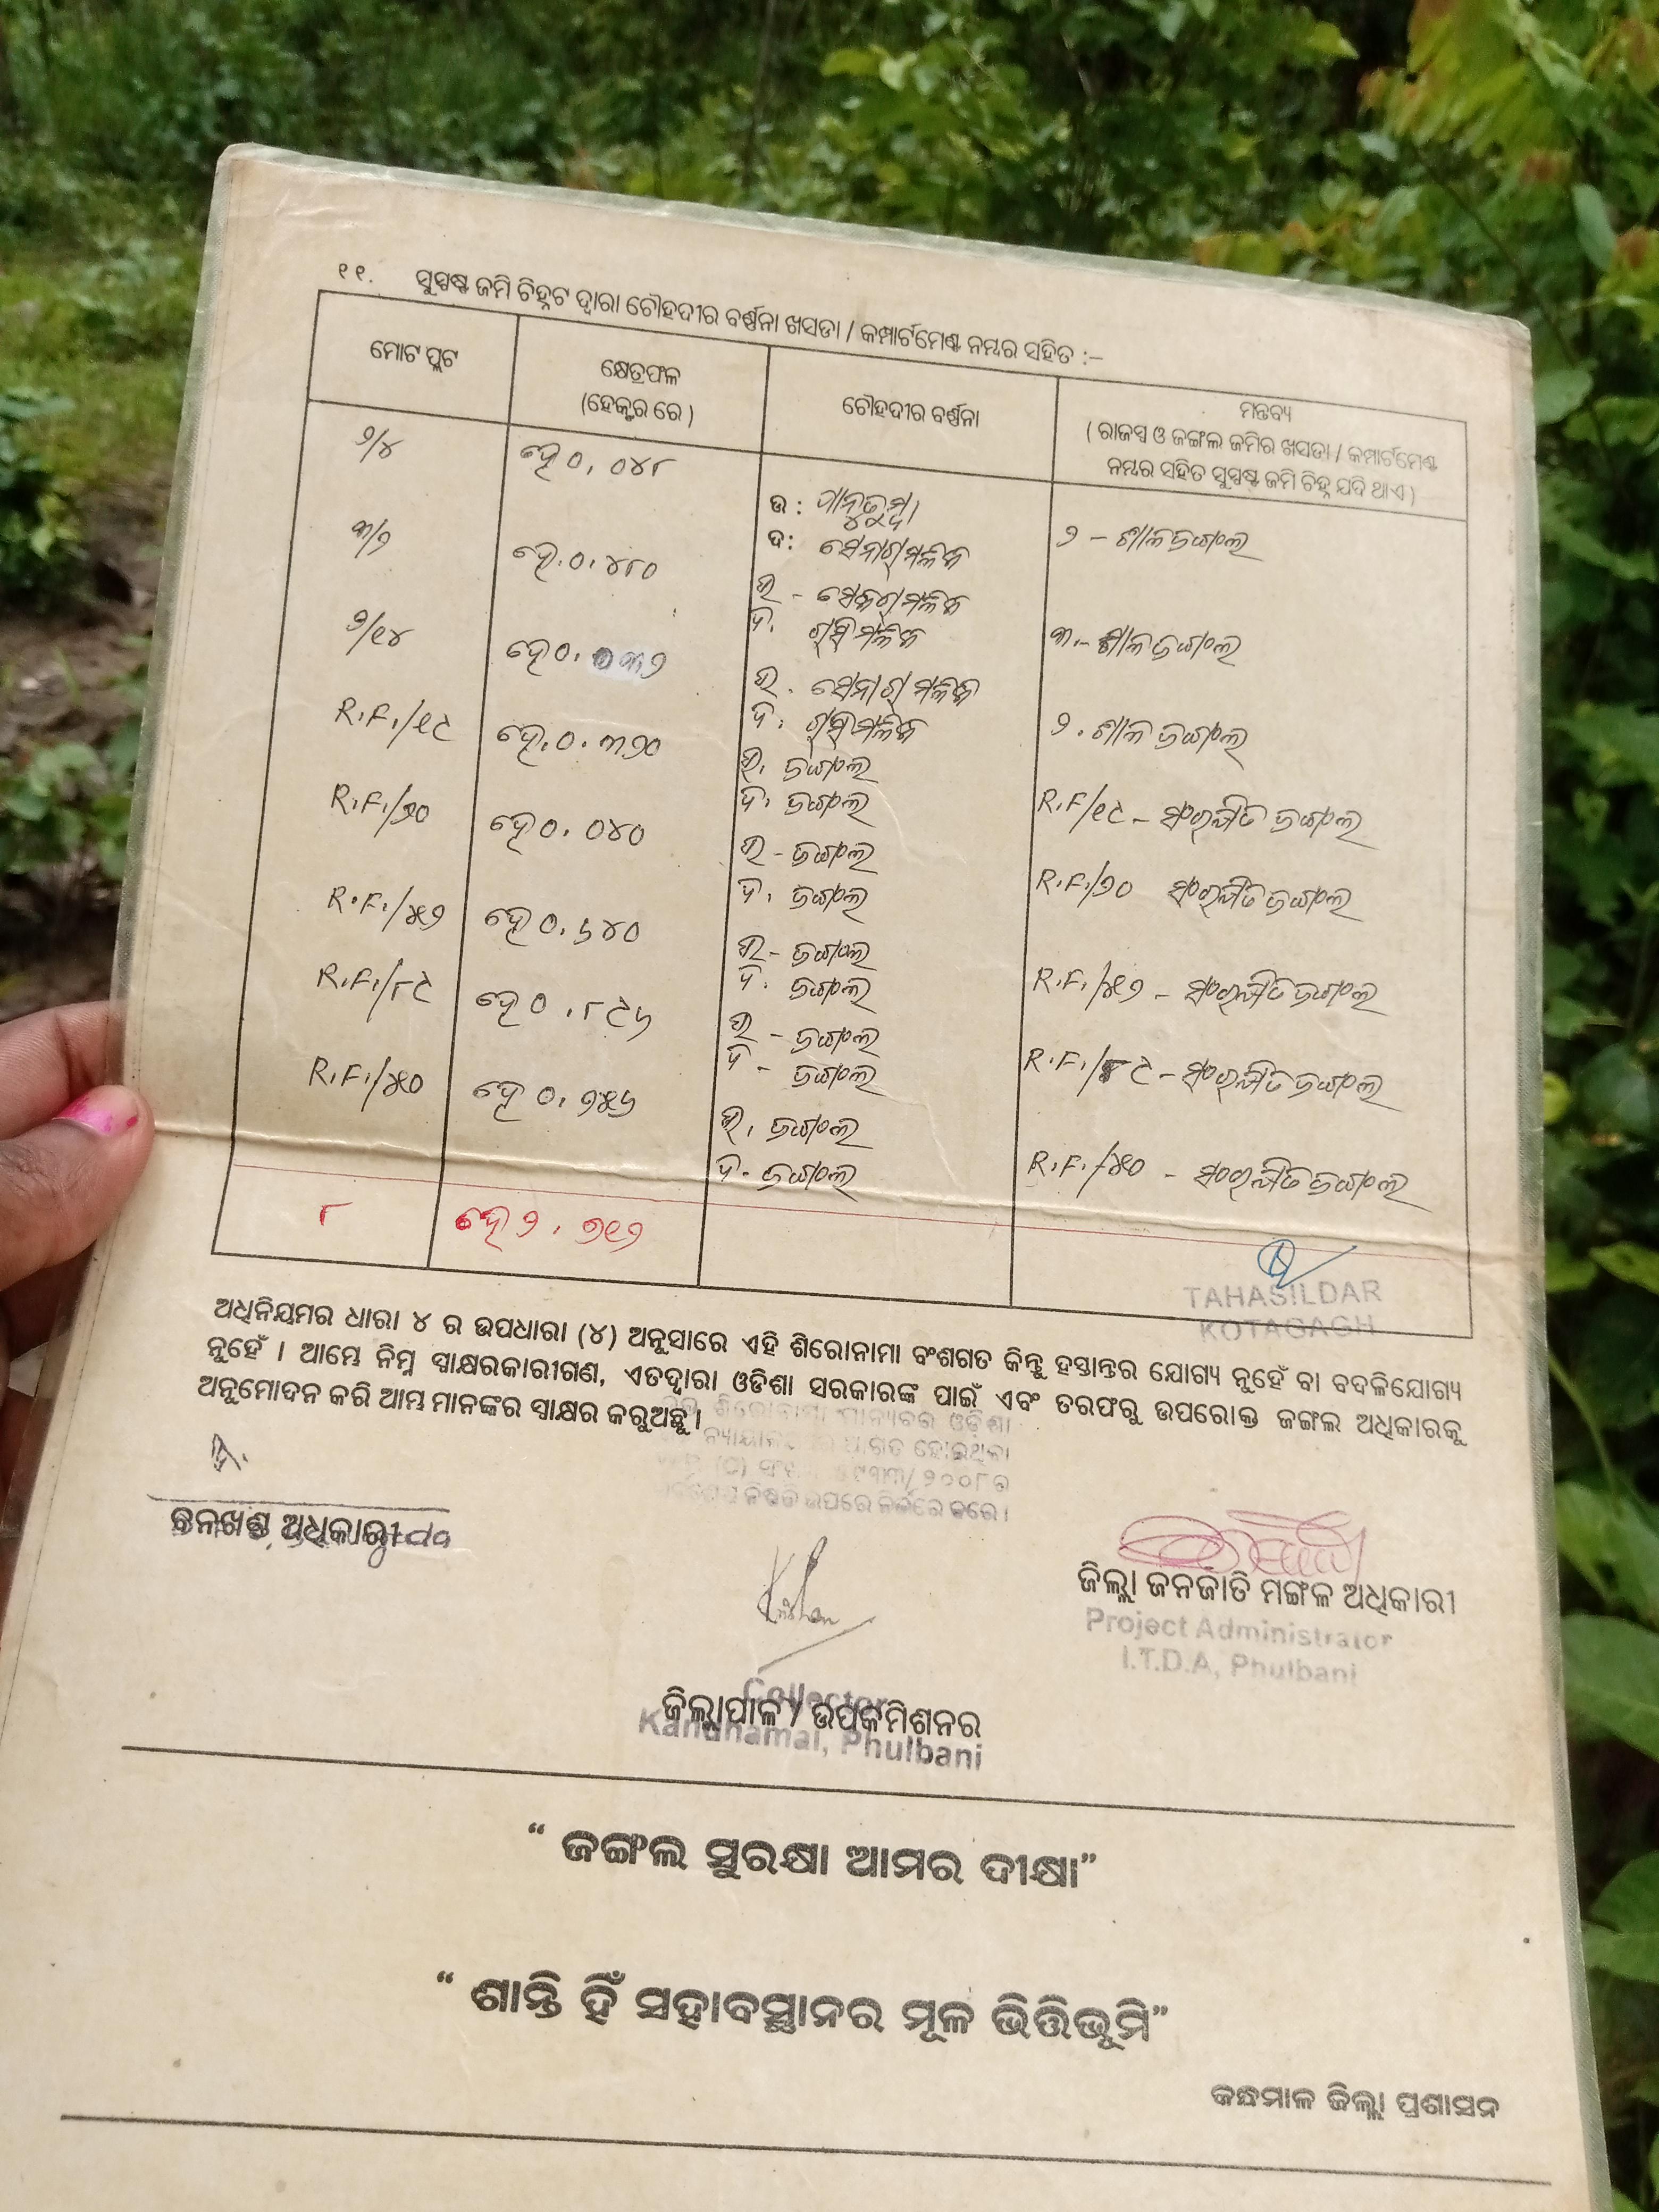 ୧୧. ସୁସ୍ପଷ୍ଟ ଜମି ଚିହ୍ନଟ ଦ୍ୱାରା ଚୌହଦୀର ବର୍ଣ୍ଣନା ଖସଡା / କମ୍ପାର୍ଟମେଣ୍ଟ ନମ୍ବର ସହିତ :–
ମୋଟ ପ୍ଲଟ
କ୍ଷେତ୍ରଫଳ
(ହେକ୍ଟର ରେ)
ଚୌହଦୀର ବର୍ଣ୍ଣନା
ମନ୍ତବ୍ୟ
( ରାଜସ୍ୱ ଓ ଜଙ୍ଗଲ ଜମିର ଖସଡା / କମ୍ପାର୍ଟମେଣ୍ଟ
ନମ୍ବର ସହିତ ସୁସ୍ପଷ୍ଟ ଜମି ଚିହ୍ନ ଯଦି ଥାଏ )
୨/୪ ହେ ୦.୦୪୮
ଉ :
ଦ: ସେନାଗ୍ ମଳିକ ୨ – ଶାଳ ଜଙ୍ଗଲ
୩/୨ ହେ.୦.୪୮୦
ଉ –
ଦ. ମଳିକ ୩.– ଶାଳ ଜଙ୍ଗଲ
୨/୧୪ ହେ ୦.୦୩୨
ଉ. ସେନାଗ୍ ମଳିକ
ଦ. ମଳିକ ୨. ଶାଳ ଜଙ୍ଗଲ
R.F./୧୯ ହେ.୦.୩୨୦
ଉ. ଜଙ୍ଗଲ
ଦ. ଜଙ୍ଗଲ R.F/୧୯ – ସଂରକ୍ଷିତ ଜଙ୍ଗଲ
R.F./୨୦ ହେ ୦.୦୪୦
ଉ – ଜଙ୍ଗଲ
ଦ. ଜଙ୍ଗଲ R.F./୨୦ ସଂରକ୍ଷିତ ଜଙ୍ଗଲ
R.F./୪୧୨ ହେ ୦.୬୪୦
ଉ – ଜଙ୍ଗଲ
ଦ. ଜଙ୍ଗଲ – ସଂରକ୍ଷିତ ଜଙ୍ଗଲ
R.F./୮୯ ହେ ୦.୮୯୬
ଉ – ଜଙ୍ଗଲ
ଦ – ଜଙ୍ଗଲ R.F./୮୯ – ସଂରକ୍ଷିତ ଜଙ୍ଗଲ
R.F./୫୦ ହେ ୦.୨୫୬
ଉ. ଜଙ୍ଗଲ
ଦ. ଜଙ୍ଗଲ R.F./୫୦ – ସଂରକ୍ଷିତ ଜଙ୍ଗଲ
୮ ହେ ୨.୭୧୨
TAHASILDAR
KOTAGAGH
ଅଧିନିୟମର ଧାରା ୪ ର ଉପଧାରା (୪) ଅନୁସାରେ ଏହି ଶିରୋନାମା ବଂଶଗତ କିନ୍ତୁ ହସ୍ତାନ୍ତର ଯୋଗ୍ୟ ନୁହେଁ ବା ବଦଳିଯୋଗ୍ୟ
ନୁହେଁ । ଆମ୍ଭେ ନିମ୍ନ ସ୍ୱାକ୍ଷରକାରୀଗଣ, ଏତଦ୍ୱାରା ଓଡିଶା ସରକାରଙ୍କ ପାଇଁ ଏବଂ ତରଫରୁ ଉପରୋକ୍ତ ଜଙ୍ଗଲ ଅଧିକାରକୁ
ଅନୁମୋଦନ କରି ଆମ୍ଭ ମାନଙ୍କର ସ୍ୱାକ୍ଷର କରୁଅଛୁ।
ଶିରୋନାମା ମାନ୍ୟବର ଓଡ଼ିଶା
ହୋଇଥିବା
୨୦୦୮ ର
ଉପରେ ନିର୍ଭର କରେ।
ବନଖଣ୍ଡ ଅଧିକାରୀ
ଜିଲ୍ଲା ଜନଜାତି ମଙ୍ଗଳ ଅଧିକାରୀ
Project Administrator
I.T.D.A, Phulbani
Collector
ଜିଲ୍ଲାପାଳ / ଉପକମିଶନର
Kandhamal, Phulbani
“ ଜଙ୍ଗଲ ସୁରକ୍ଷା ଆମର ଦୀକ୍ଷା”
“ ଶାନ୍ତି ହିଁ ସହାବସ୍ଥାନର ମୂଳ ଭିତ୍ତିଭୂମି”
କନ୍ଧମାଳ ଜିଲ୍ଲା ପ୍ରଶାସନ